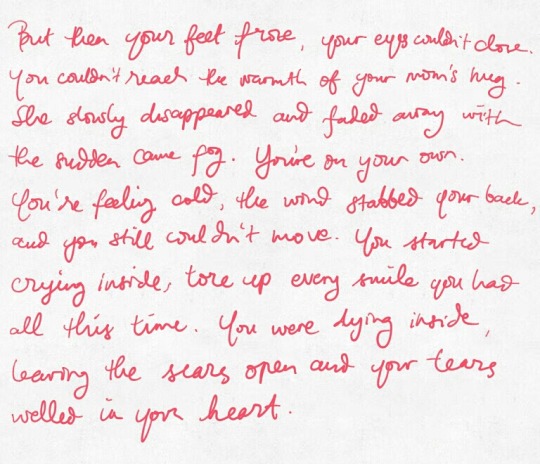 But then your feet froze, your eyes couldn't close.
You couldn't reach the warmth of your mom's hug.
She slowly disappeared and faded away with
the sudden came fog. You're on your own.
You're feeling cold, the wind stabbed your back,
and you still couldn't move. You started
crying inside, tore up every smile you had
all this time. You were dying inside,
leaving the scars open and your tears
welled in your heart.